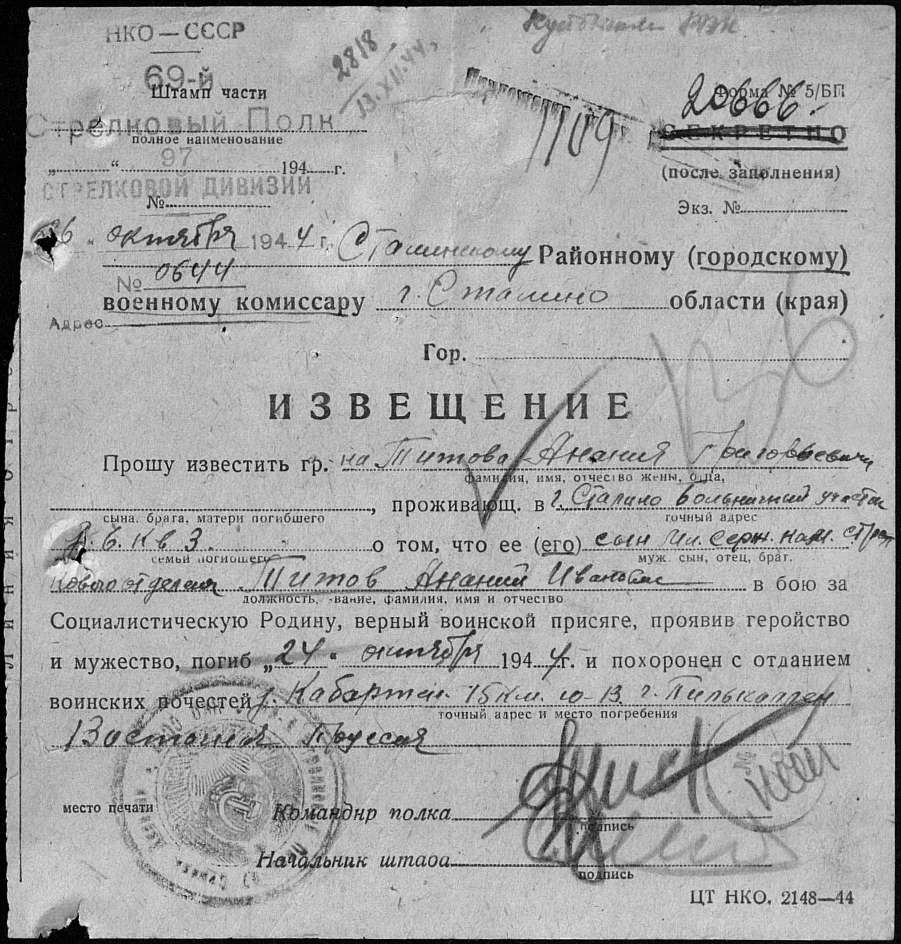 НКО — СССР
69-й
Штамп части
Стрелковый Полк
полное наименование
97
„ “ 194 г.
СТРЕЛКОВОЙ ДИВИЗИИ
№
2818
13.XII.44.
1109
Форма № 5/БП
20666
СЕКРЕТНО
(после заполнения)
Экз. №
26 „ октября 1944 г.
№ 0644
Адрес
Сталинскому Районному (городскому)
военному комиссару г. Сталино области (края)
Гор.
ИЗВЕЩЕНИЕ
Прошу известить гр. на Титова Анания
фамилия, имя, отчество жены, отца,
, проживающ. в г. Сталино больничный участок
сына, брата, матери погибшего точный адрес
о том, что ее (его) сын
семьи погибшего муж, сын, отец, брат.
отделения Титов Ананий Иванович в бою за
должность, звание, фамилия, имя и отчество
Социалистическую Родину, верный воинской присяге, проявив геройство
и мужество, погиб „24“ октября 1944 г. и похоронен с отданием
воинских почестей 15 км. ю-в г. Пилькаллен
точный адрес и место погребения
Восточная Пруссия
место печати
Командир полка
подпись
Начальник штаба
подпись
ЦТ НКО. 2148—44